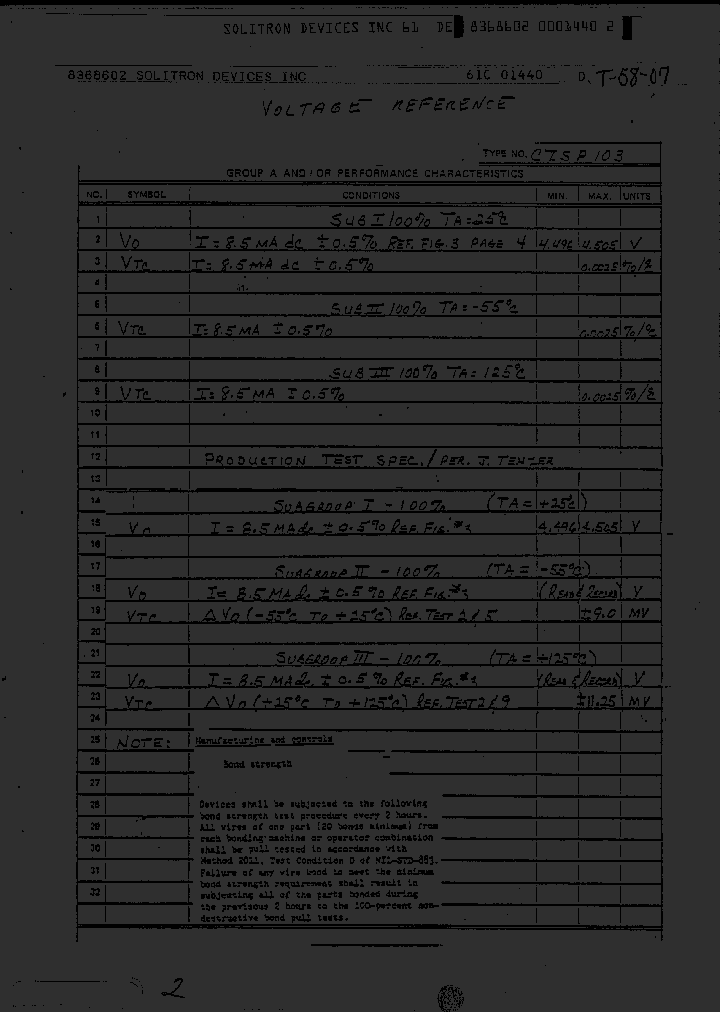 SOLITRON DEVICES INC 61 DE 8368602 0001440 2
8368602 SOLITRON DEVICES INC 61C 01440 D. T-58-07
VOLTAGE REFERENCE
TYPE NO. CJSP103
GROUP A AND/OR PERFORMANCE CHARACTERISTICS
NO. SYMBOL CONDITIONS MIN. MAX. UNITS
1 SUB I 100% TA=25°C
2 VO I = 8.5 MA dc ±0.5% REF. FIG. 3 PAGE 4 4.496 4.505 V
3 VTC I = 8.5 MA dc ±0.5% 0.0025 %/°C
4
5 SUB II 100% TA=-55°C
6 VTC I = 8.5 MA ±0.5% 0.0025 %/°C
7
8 SUB III 100% TA=125°C
9 VTC I = 8.5 MA ±0.5% 0.0025 %/°C
10
11
12 PRODUCTION TEST SPEC./PER. J. TENZER
13
14 SUBGROUP I - 100% (TA = +25°C)
15 VO I = 8.5 MA dc ±0.5% REF. FIG. 4.496 4.505 V
16
17 SUBGROUP II - 100% (TA = -55°C)
18 VO I = 8.5 MA dc ±0.5% REF. FIG. (READ & RECORD) V
19 VTC Δ VO (-55°C TO +25°C) REF. TEST 2 & 5 ±9.0 MV
20
21 SUBGROUP III - 100% (TA = +125°C)
22 VO I = 8.5 MA dc ±0.5% REF. FIG. (READ & RECORD) V
23 VTC Δ VO (+25°C TO +125°C) REF. TEST 2 & 9 ±11.25 MV
24
25 NOTE: Manufacturing and controls
26 Bond strength
27
28 Devices shall be subjected to the following
bond strength test procedure every 2 hours.
29 All wires of one part (20 bonds minimum) from
each bonding machine or operator combination
30 shall be pull tested in accordance with
Method 2011, Test Condition D of MIL-STD-883.
31 Failure of any wire bond to meet the minimum
bond strength requirement shall result in
32 subjecting all of the parts bonded during
the previous 2 hours to the 100-percent non-
destructive bond pull tests.
2